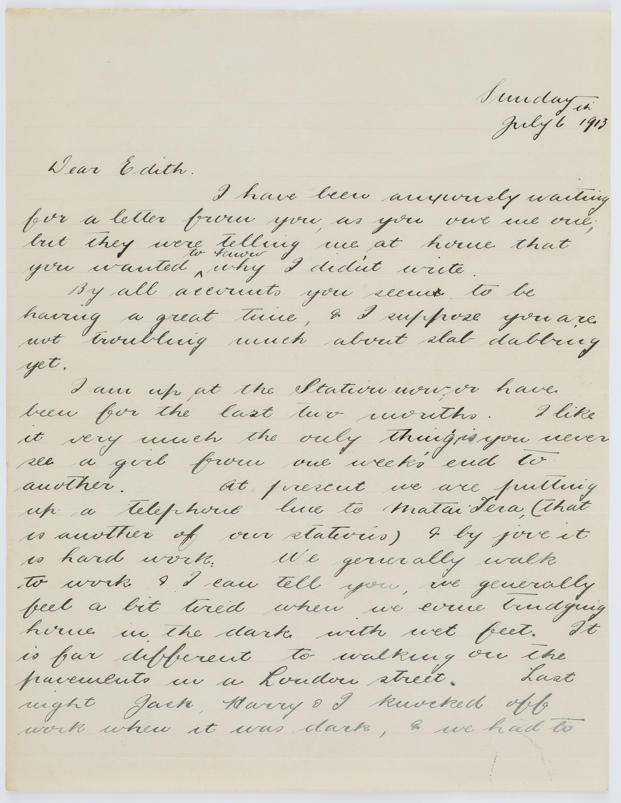 Sunday
July 6th 1913
Dear Edith.
I have been anxiously waiting
for a letter from you, as you owe me one,
but they were telling me at home that
you wanted to know why I didn't write.
By all accounts you seem to be
having a great time, & I suppose you are
not troubling much about slab dabbing
yet.
I am up at the Station now, or have
been for the last two months. I like
it very much the only thing is you never
see a girl from one week's end to
another. At present we are putting
up a telephone line to Matai Tera, (that
is another of our stations) & by jove it
is hard work. We generally walk
to work & I can tell you, we generally
feel a bit tired when we come trudging
home in the dark with wet feet. It
is far different to walking on the
pavements in a London street. Last
night Jack, Harry & I knocked off
work when it was dark, & we had to